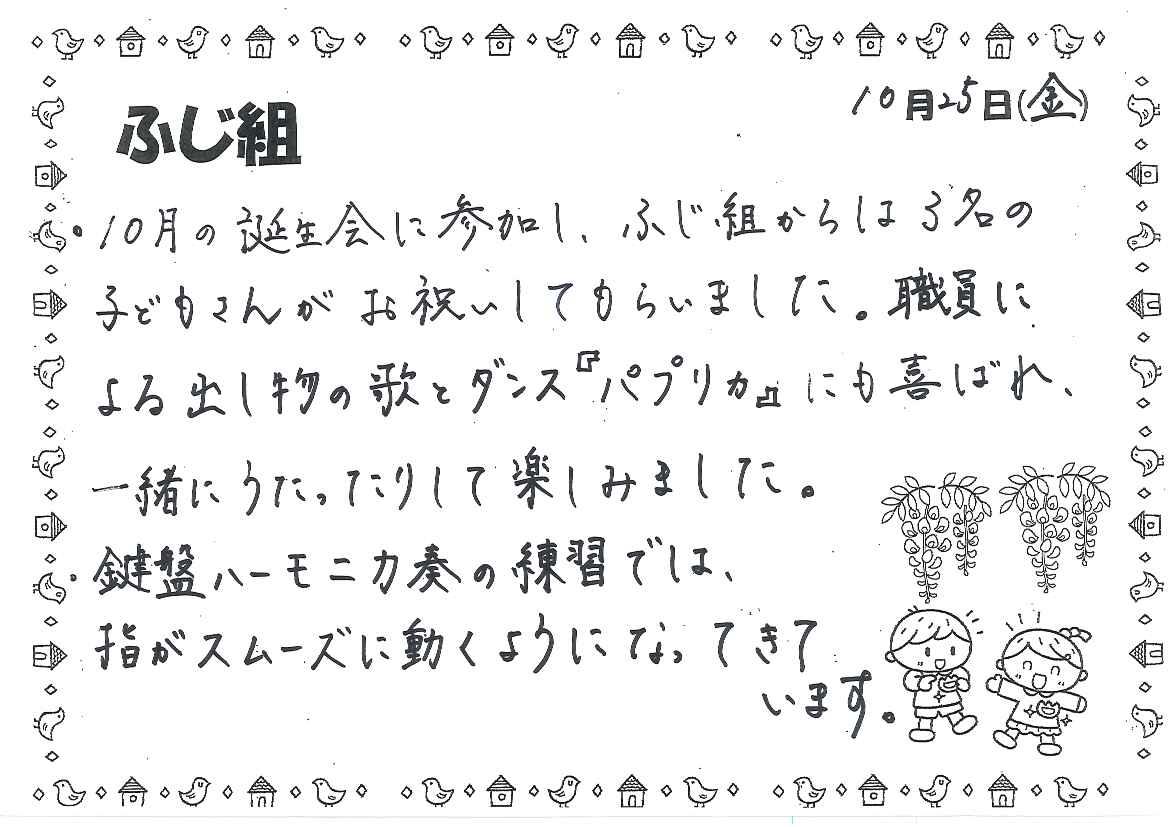 ふじ組
10月25日(金)
・10月の誕生会に参加し、ふじ組からは3名の
子どもさんがお祝いしてもらいました。職員に
よる出し物の歌とダンス『パプリカ』にも喜ばれ、
一緒にうたったりして楽しみました。
・鍵盤ハーモニカ奏の練習では、
指がスムーズに動くようになってきて
います。